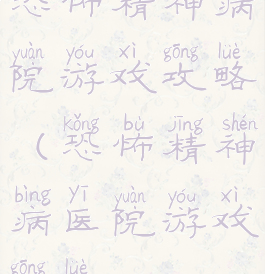 恐怖精神病
yuàn yóu xì gōng lüè
院游戏攻略
kǒng bù jīng shén
（恐怖精神
bìng yī yuàn yóu xì
病医院游戏
gōng lüè